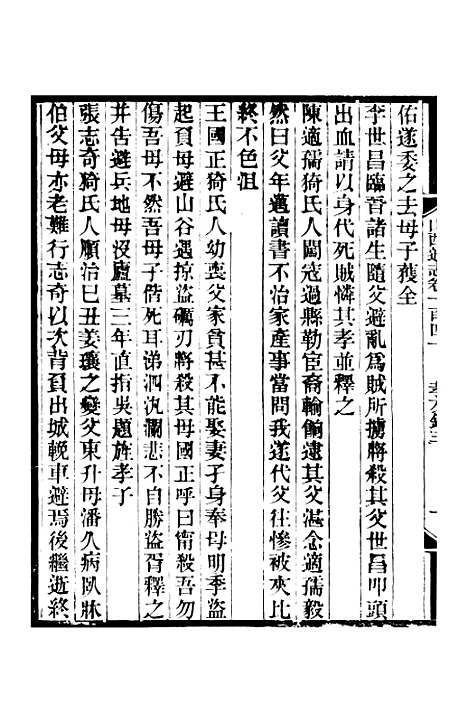 佑遂委之去母子獲全
李世昌臨晉諸生隨父避亂為賊所擄將殺其父世昌叩頭
出血請以身代死賊憐其孝並釋之
陳適孺猗氏人闖寇過縣勒宦裔輸餉逮其父湛念適孺毅
然曰父年邁讀書不治家產事當問我遂代父往慘被夾比
終不色沮
王國正猗氏人幼喪父家貧甚不能娶妻孑身奉母明季盜
起負母避山谷遇掠盜礪刃將殺其母國正呼曰甯殺吾勿
傷吾母不然吾母子偕死耳涕泗汍瀾悲不自勝盜胥釋之
并告避兵地母沒廬墓三年直指吳題旌孝子
張志奇猗氏人順治己丑姜瓖之變父東升母潘久病臥牀
伯父母亦老難行志奇以次背負出城輓車避焉後繼逝終
山西通志卷一百四十 孝友錄三